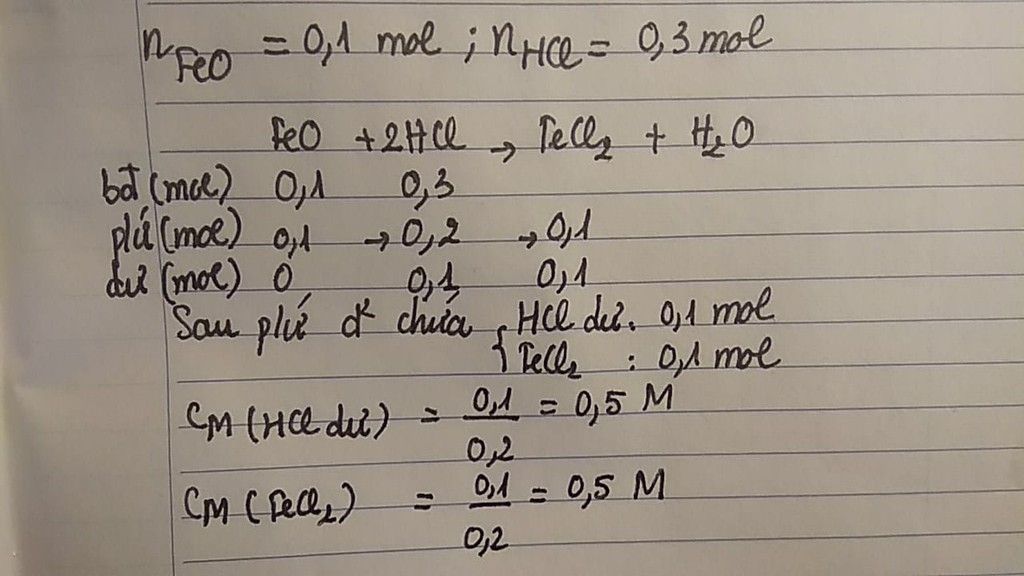 nFeO = 0,1 mol ; nHCl = 0,3 mol
FeO + 2HCl → FeCl2 + H2O
bđ (mol) 0,1 0,3
pứ (mol) 0,1 → 0,2 → 0,1
dư (mol) 0 0,1 0,1
Sau pứ d² chứa { HCl dư : 0,1 mol
FeCl2 : 0,1 mol
CM (HCl dư) = 0,1/0,2 = 0,5 M
CM (FeCl2) = 0,1/0,2 = 0,5 M